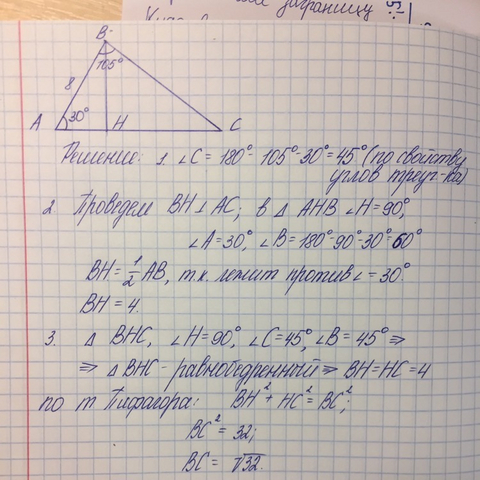 заграницу
B
8
105°
30°
A
H
C
Решение: 1. ∠C = 180° - 105° - 30° = 45° (по свойству
углов треуг-ка)
2. Проведем BH ⊥ AC; в Δ AHB ∠H = 90°,
∠A = 30°, ∠B = 180° - 90° - 30° = 60°
BH = 1/2 AB, т.к. лежит против ∠ = 30°.
BH = 4.
3. Δ BHC, ∠H = 90°, ∠C = 45°, ∠B = 45° ⇒
⇒ Δ BHC - равнобедренный ⇒ BH = HC = 4
по т. Пифагора: BH² + HC² = BC²;
BC² = 32;
BC = √32.